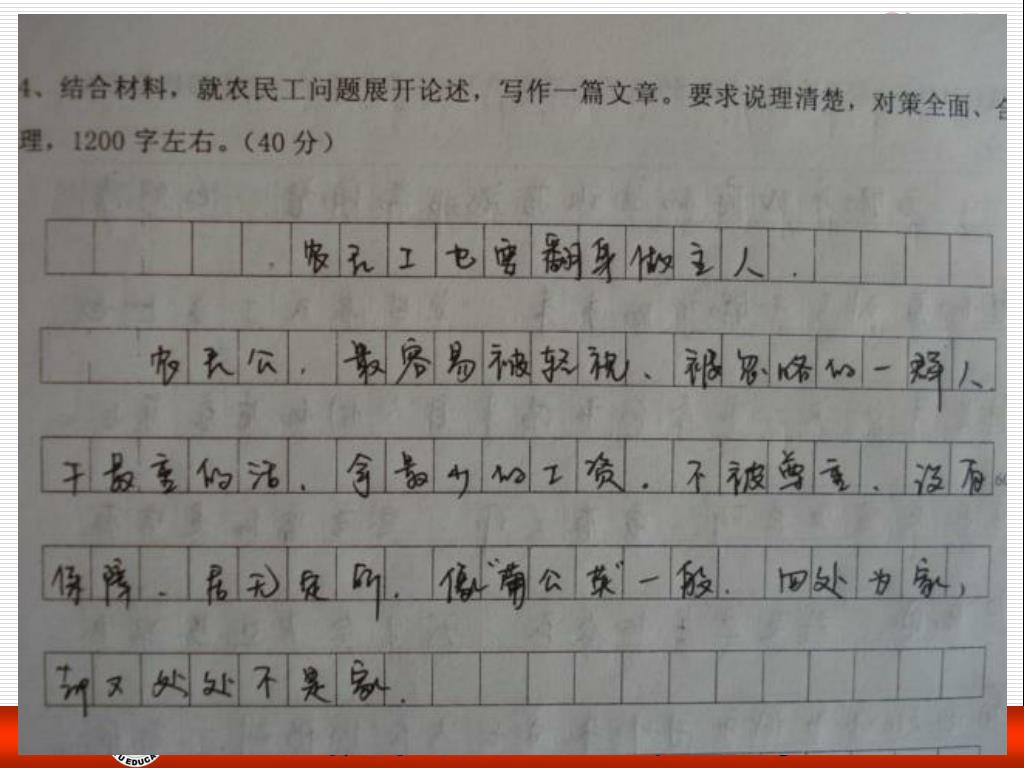 4、结合材料，就农民工问题展开论述，写作一篇文章。要求说理清楚，对策全面、合
理，1200字左右。（40分）
农民工也要翻身做主人.
农民公，最容易被轻视、被忽略的一群人
干最重的活，拿最少的工资。不被尊重，没有
保障、居无定所，像"蒲公英"一般. 四处为家，
却又处处不是家.
U EDUCA